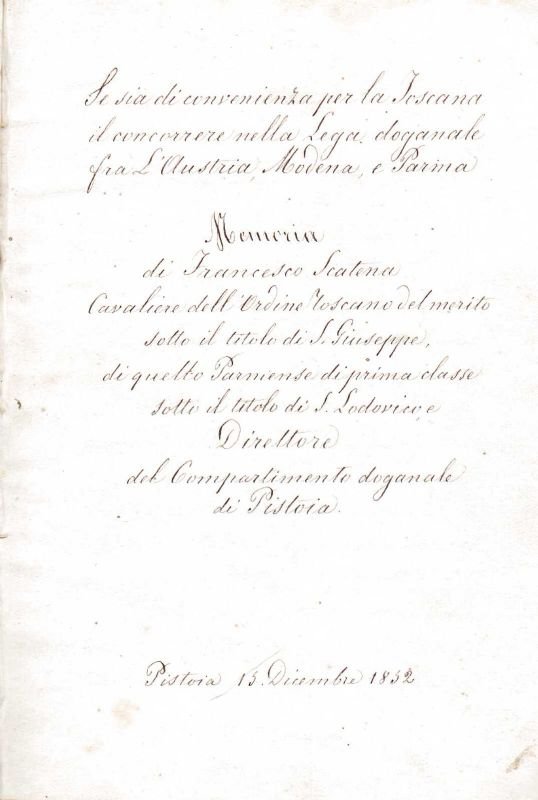 Se sia di convenienza per la Toscana
il concorrere nella Lega doganale
fra L'Austria, Modena, e Parma
Memoria
di Francesco Scatena
Cavaliere dell'Ordine Toscano del merito
sotto il titolo di S. Giuseppe,
di quello Parmense di prima classe
sotto il titolo di S. Lodovico, e
Direttore
del Compartimento doganale
di Pistoia.
Pistoia 15. Dicembre 1852